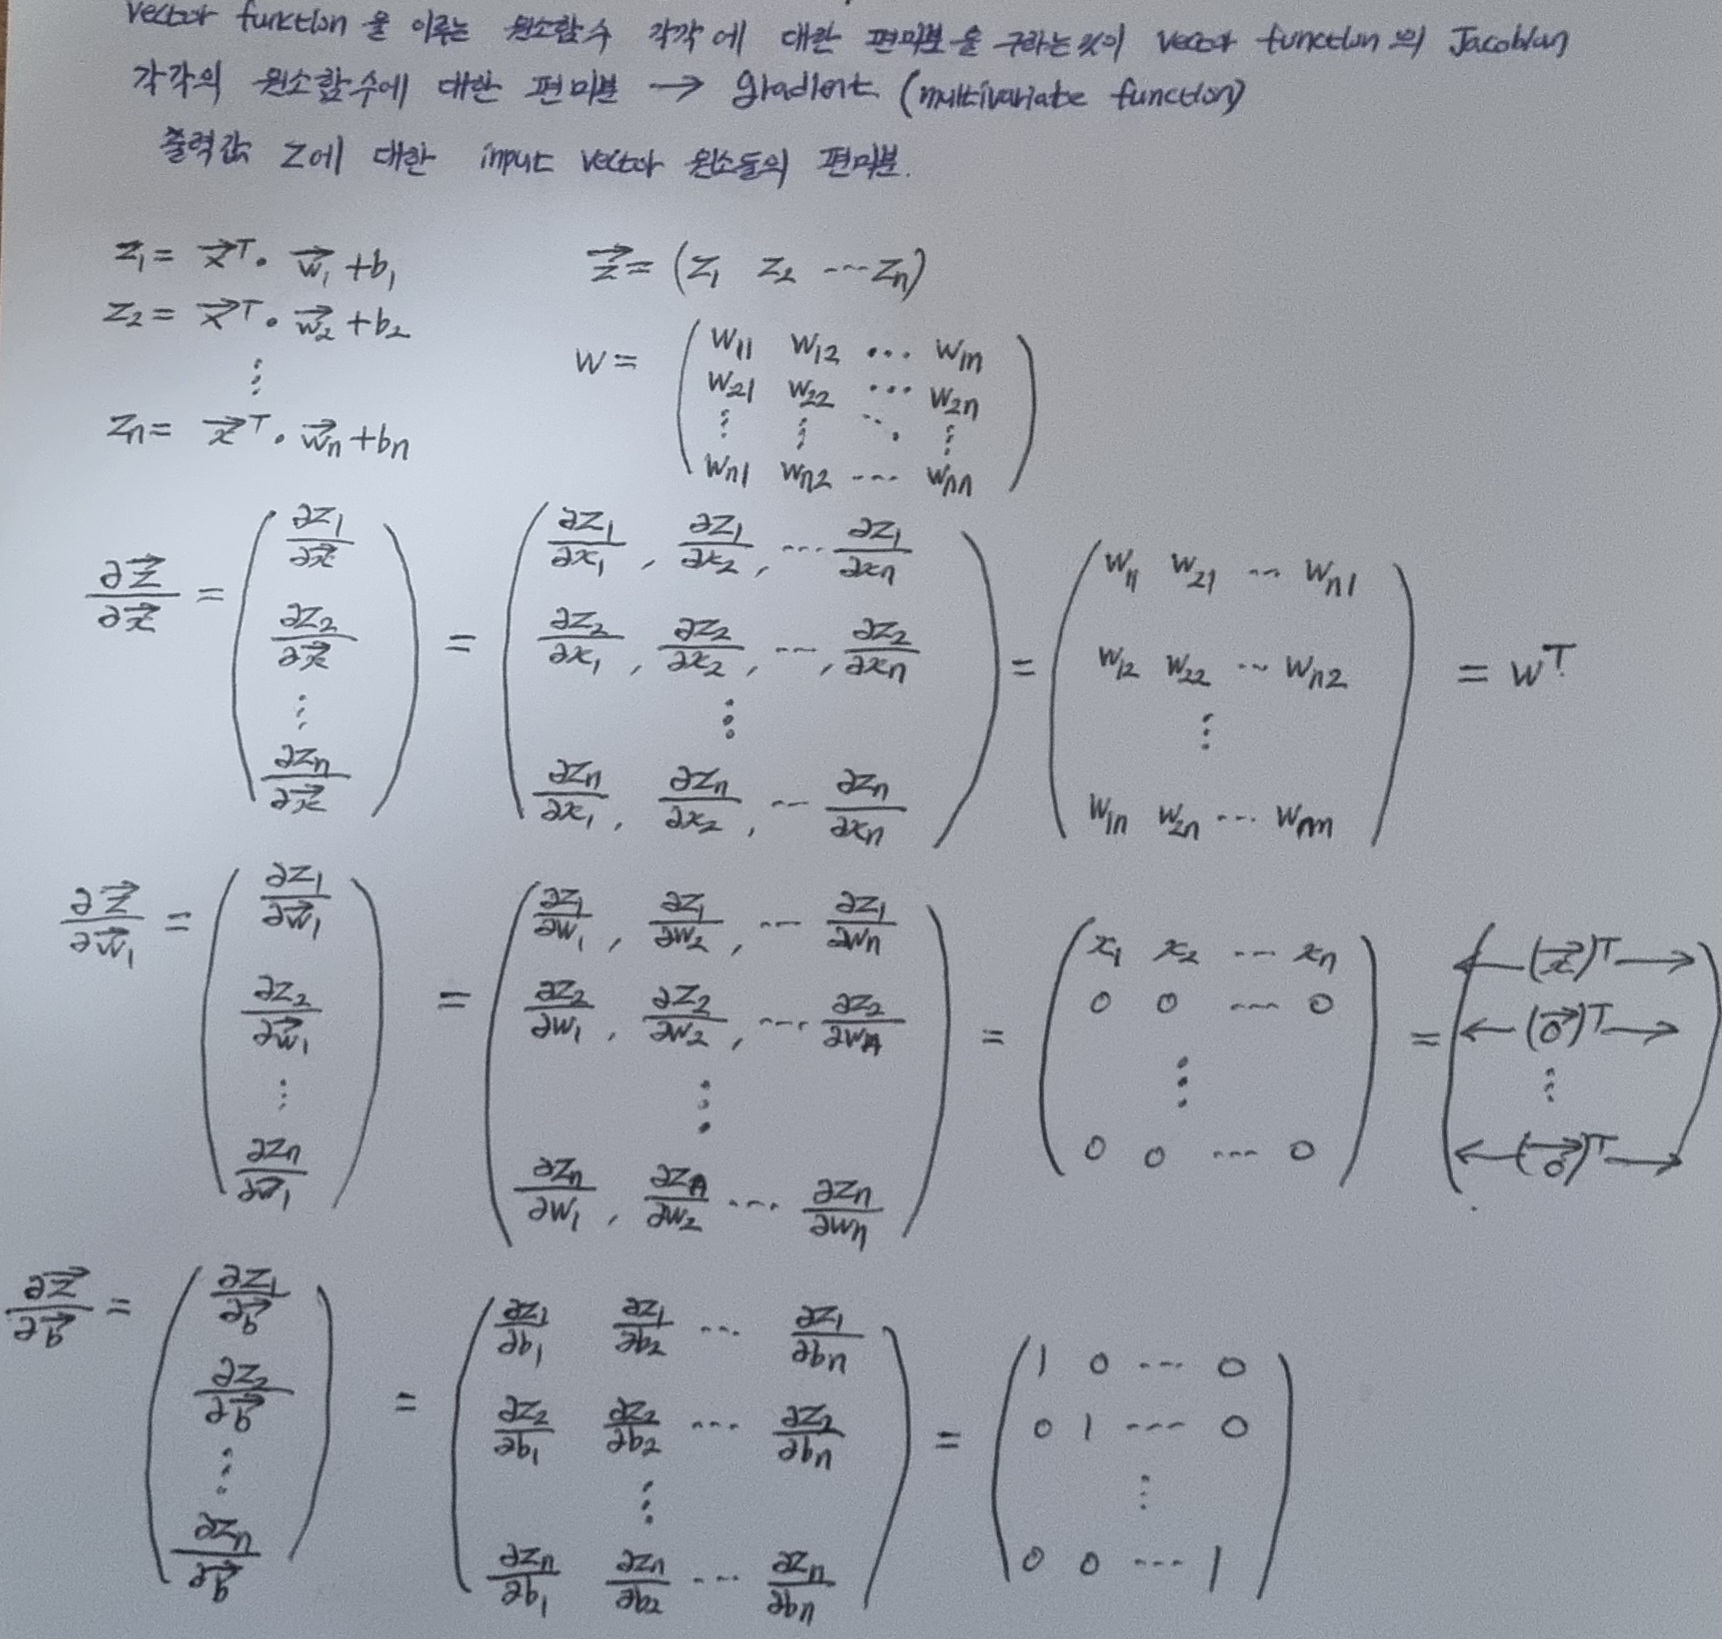 vector function 을 이루는 원소함수 각각에 대한 편미분을 구하는것이 vector function의 Jacobian
각각의 원소함수에 대한 편미분 → gradient (multivariate function)
출력값 z에 대한 input vector 원소들의 편미분.
z₁ = x⃗ᵀ · w⃗₁ + b₁
z⃗ = (z₁ z₂ ⋯ zₙ)
z₂ = x⃗ᵀ · w⃗₂ + b₂
⋮
zₙ = x⃗ᵀ · w⃗ₙ + bₙ
W = (w₁₁ w₁₂ ⋯ w₁ₙ
w₂₁ w₂₂ ⋯ w₂ₙ
⋮ ⋮ ⋱ ⋮
wₙ₁ wₙ₂ ⋯ wₙₙ)
∂z⃗/∂x⃗ = (∂z₁/∂x⃗ ∂z₂/∂x⃗ ⋮ ∂zₙ/∂x⃗)
= (∂z₁/∂x₁, ∂z₁/∂x₂, ⋯ ∂z₁/∂xₙ
∂z₂/∂x₁, ∂z₂/∂x₂, ⋯, ∂z₂/∂xₙ
⋮
∂zₙ/∂x₁, ∂zₙ/∂x₂, ⋯ ∂zₙ/∂xₙ)
= (w₁₁ w₂₁ ⋯ wₙ₁
w₁₂ w₂₂ ⋯ wₙ₂
⋮
w₁ₙ w₂ₙ ⋯ wₙₙ) = Wᵀ
∂z⃗/∂w⃗₁ = (∂z₁/∂w⃗₁ ∂z₂/∂w⃗₁ ⋮ ∂zₙ/∂w⃗₁)
= (∂z₁/∂w₁, ∂z₁/∂w₂, ⋯ ∂z₁/∂wₙ
∂z₂/∂w₁, ∂z₂/∂w₂, ⋯ ∂z₂/∂wₙ
⋮
∂zₙ/∂w₁, ∂zₙ/∂w₂ ⋯ ∂zₙ/∂wₙ)
= (x₁ x₂ ⋯ xₙ
0 0 ⋯ 0
⋮
0 0 ⋯ 0)
= (← (x⃗)ᵀ →
← (0⃗)ᵀ →
⋮
← (0⃗)ᵀ →)
∂z⃗/∂b⃗ = (∂z₁/∂b⃗ ∂z₂/∂b⃗ ⋮ ∂zₙ/∂b⃗)
= (∂z₁/∂b₁ ∂z₁/∂b₂ ⋯ ∂z₁/∂bₙ
∂z₂/∂b₁ ∂z₂/∂b₂ ⋯ ∂z₂/∂bₙ
⋮
∂zₙ/∂b₁ ∂zₙ/∂b₂ ⋯ ∂zₙ/∂bₙ)
= (1 0 ⋯ 0
0 1 ⋯ 0
⋮
0 0 ⋯ 1)